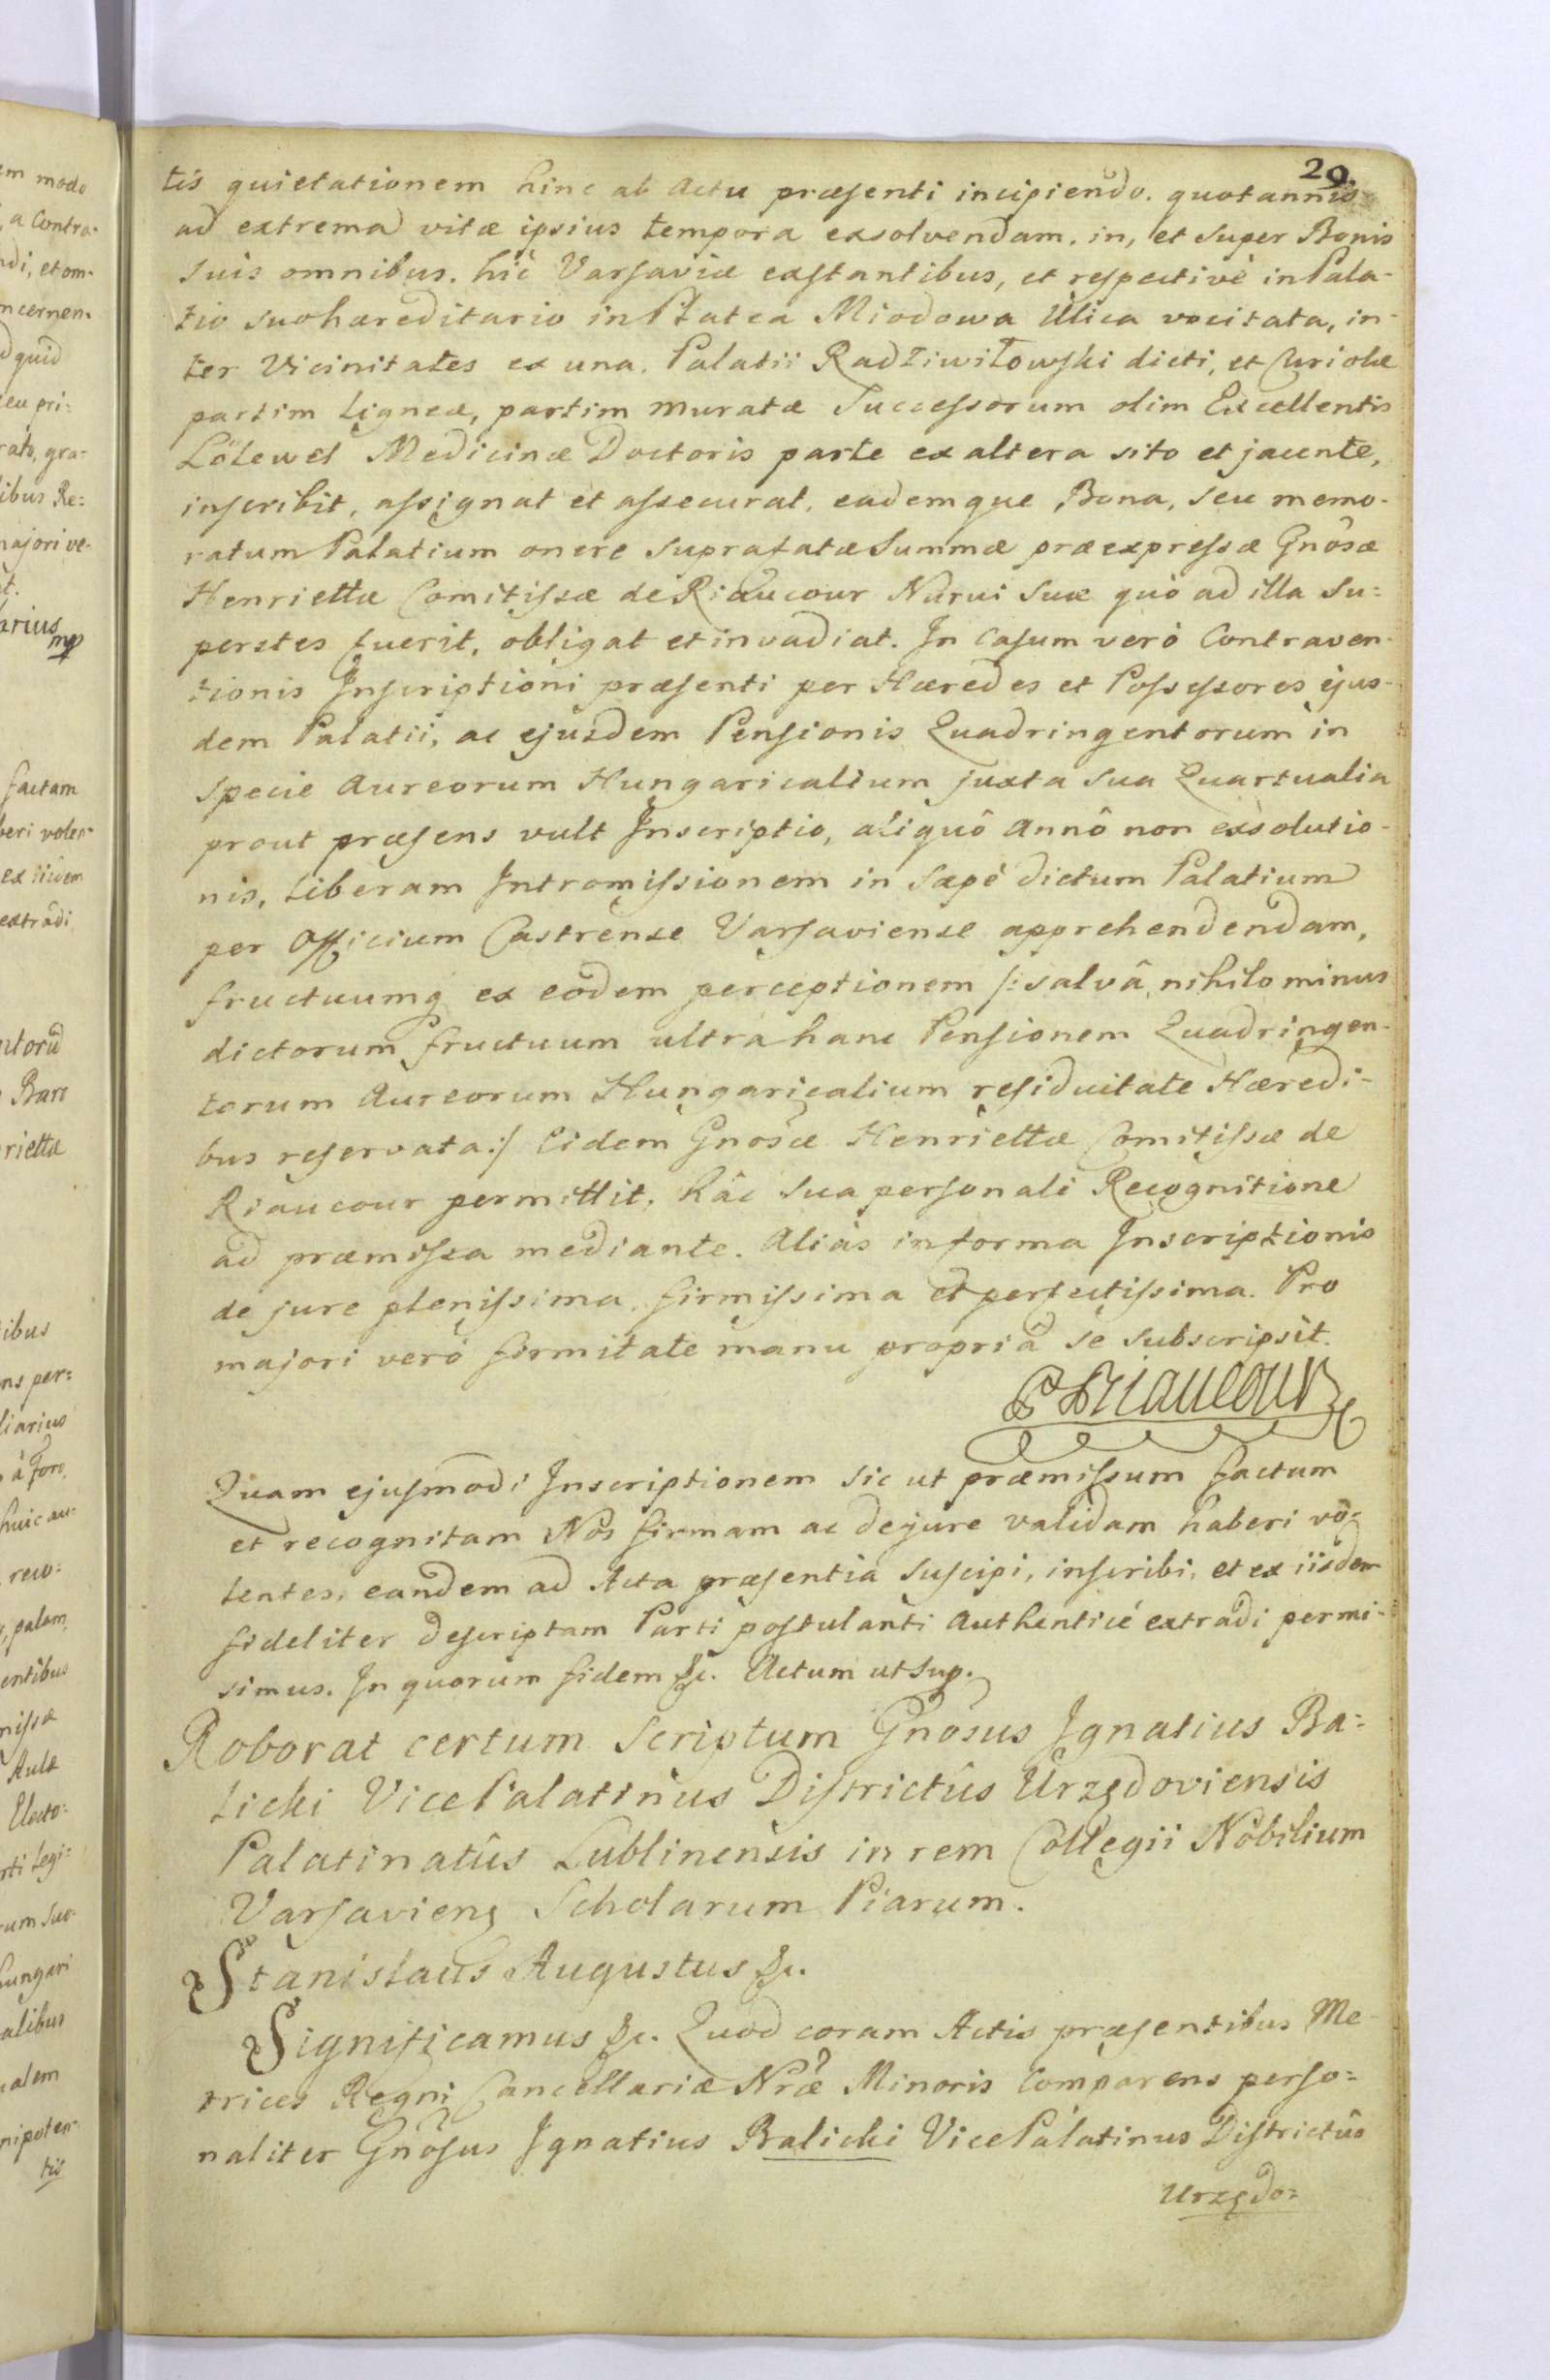 29.
tis quietationem hinc ab Actu præsenti incipiendo. quotannis
ad extrema vitæ ipsius tempora exsolvendam. in, et super Bonis
suis omnibus. hic Varsaviæ exstantibus, et respectivè in Pala-
tio suo hæreditario in Platea Miodowa Ulica vocitata, in-
ter Vicinitates ex una. Palatii Radziwiłowski dicti, et Curiolæ
partim Ligneæ, partim muratæ Successorum olim Excellentis
Lölewel Medicinæ Doctoris parte ex altera sito et jacente,
inscribit, assignat et assecurat, eademque Bona, seu memo-
ratum Palatium onere supra fatæ Summæ præexpressæ Gnôsæ
Henriettæ Comitissæ de Riaucour Nurui suæ quò ad illa su=
perstes fuerit, obligat et invadiat. In Casum verò Contraven-
tionis Inscriptioni præsenti per Hæredes et Possessores ejus-
dem Palatii, ac ejusdem Pensionis Quadringentorum in
specie Aureorum Hungaricalium juxta sua Quartualia
prout præsens vult Inscriptio, aliquô Annô non exsolutio-
nis, Liberam Intromissionem in sæpè dictum Palatium
per Officium Castrense Varsaviense apprehendendam,
fructuumq ex eodem perceptionem /: salvâ nihilominus
dictorum fructuum ultra hanc Pensionem Quadringen-
torum Aureorum Hungaricalium residuitate Hæredi-
bus reservata :/ Eidem Gnosæ Henriettæ Comitissæ de
Riaucour permittit, hâc sua personali Recognitione
ad præmissa mediante. Aliàs in forma Inscriptionis
de jure plenissima, firmissima et perfectissima. Pro
majori verò firmitate manu propriâ se subscripsit.
P Riaucour
Quam ejusmodi Inscriptionem sic ut præmissum factum
et recognitam Nos firmam ac de jure validam haberi vo=
lentes, eandem ad Acta præsentia suscipi, inscribi, et ex iisdem
fideliter descriptam Parti postulanti Authenticè extradi permi-
simus. In quorum fidem &c. Actum ut sup.
Roborat certum Scriptum Gnosus Ignatius Ba=
licki VicePalatinus Districtûs Urzędoviensis
Palatinatûs Lublinensis in rem Collegii Nobilium
Varsaviens Scholarum Piarum.
Stanislaus Augustus &c.
Significamus &c. Quod coram Actis præsentibus Me
trices Regni Cancellariæ Nræ Minoris Comparens perso=
naliter Gnôsus Ignatius Balicki VicePalatinus Districtûs
Urzędo=